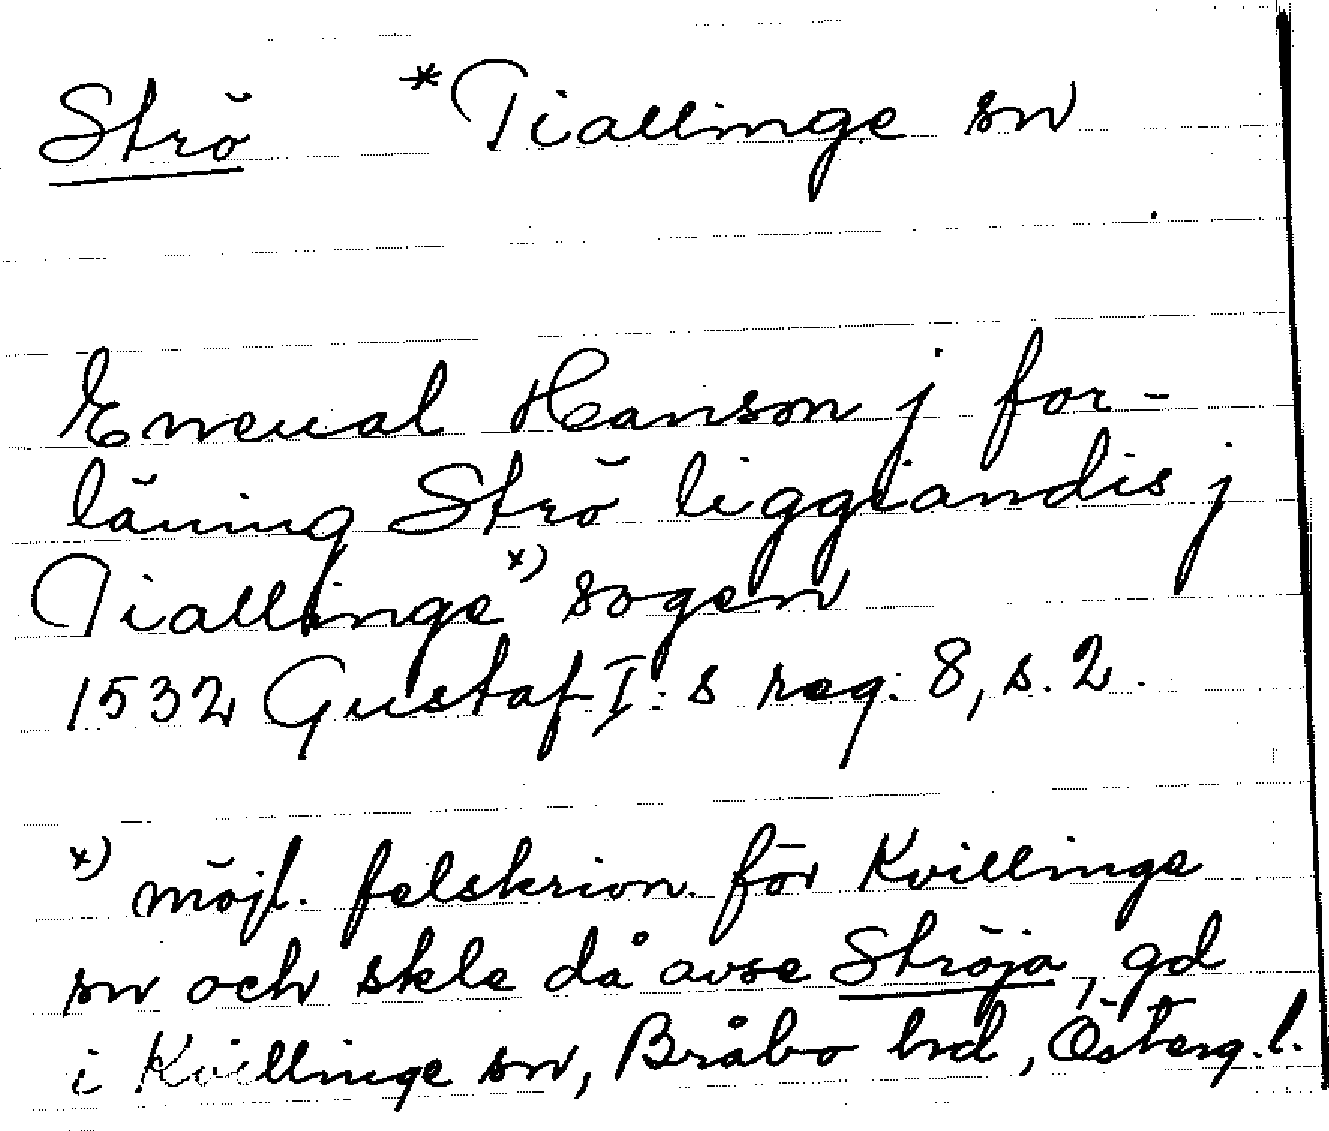 Strö *Tiallinge sn
Eneual Hanson j for-
läning Strö liggiandis j
Tiallinge*) sogen
1532 Gustaf I:s reg. 8, s. 2.
*) möjl. felskrivn. för Kvillinge
sn och skle då avse Ströja, gd
i Kvillinge sn, Bråbo hd, Österg. l.